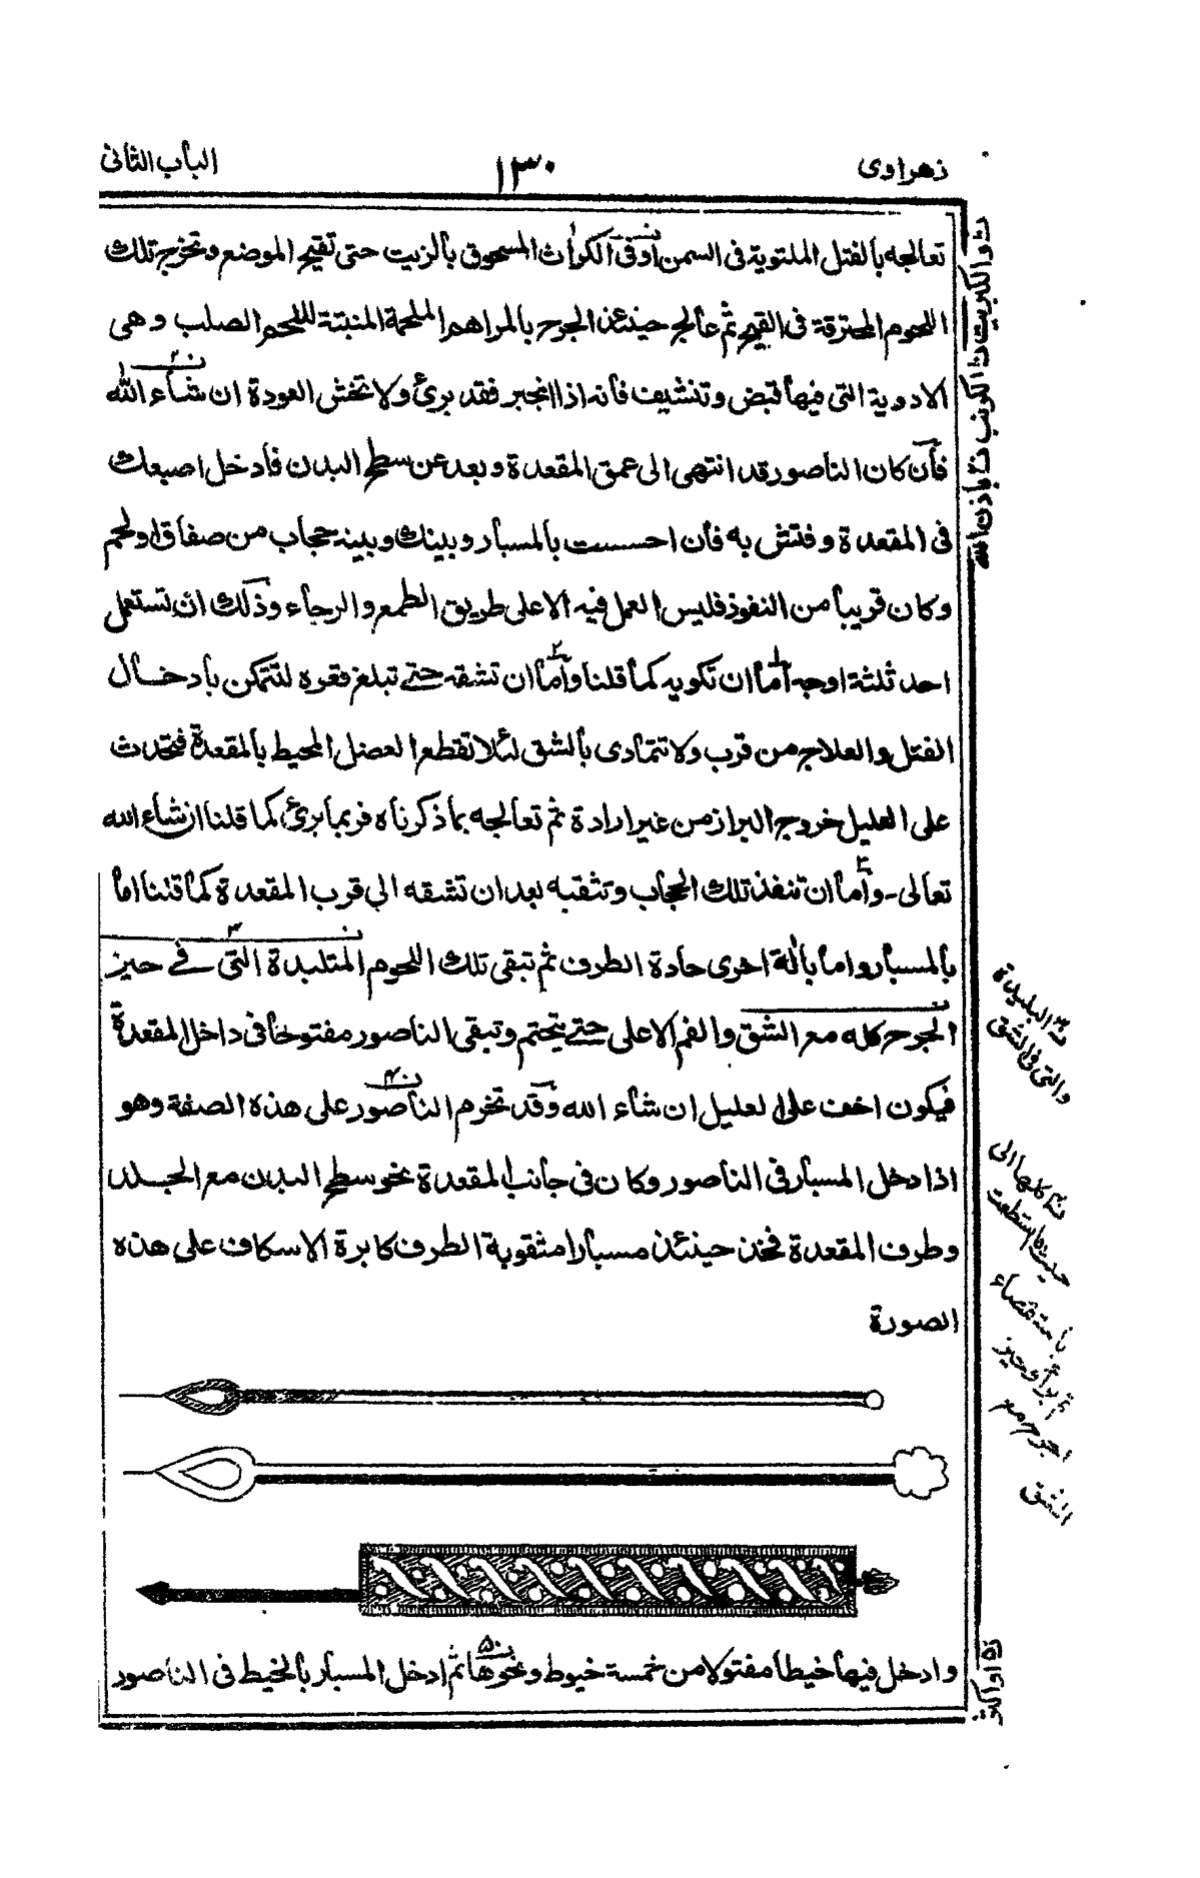 زهراوى
١٣٠
الباب الثانى
تعالجه بالفتل الملتوية فى السمن اوفى الكراث المسحوق بالزيت حتى تقيح الموضع وتخرج تلك
اللحوم المحترقة فى القيح ثم عالج حينئذ الجرح بالمراهم الملحمة المنبتة لللحم الصلب وهى
الادوية التى فيها قبض وتنشيف فانه اذا انجبر فقد برئ ولا تخش العودة ان شاء الله
فان كان الناصور قد انتهى الى عمق المقعدة وبعد عن سطح البدن فادخل اصبعك
فى المقعدة وفتش به فان احسست بالمسبار وبينك وبينه حجاب من صفاق اولحم
وكان قريبا من النفوذ فليس العمل فيه الا على طريق الطمع والرجاء وذلك ان تستعمل
احد ثلثة اوجه اما ان تكويه كما قلنا واما ان تشقه حتى تبلغ قعره لتتمكن بادخال
الفتل والعلاج من قرب ولا تتمادى بالشق لئلا تقطع العضل المحيط بالمقعدة فتحدث
على العليل خروج البراز من غير ارادة ثم تعالجه بما ذكرناه فربما برئ كما قلنا انشاء الله
تعالى۔ واما ان تنفذ تلك الحجاب وتثقبه بعد ان تشقه الى قرب المقعدة كما قلنا اما
بالمسبار واما بالة اخرى حادة الطرف ثم تبقى تلك اللحوم المتلبدة التى فى حيز
الجرح كله مع الشق والفم الاعلى حتى يختم وتبقى الناصور مفتوحا فى داخل المقعدة
فيكون اخف على العليل ان شاء الله وقد تخرم الناصور على هذه الصفة وهو
اذا دخل المسبار فى الناصور وكان فى جانب المقعدة نحو سطح البدن مع الجلد
وطرف المقعدة فخذ حينئذ مسبارا مثقوبة الطرف كابرة الاسكاف على هذه
الصورة
وادخل فيها خيطا مفتولا من خمسة خيوط ونحوها ثم ادخل المسبار بالخيط فى الناصور
والتى فى الشق
الشق